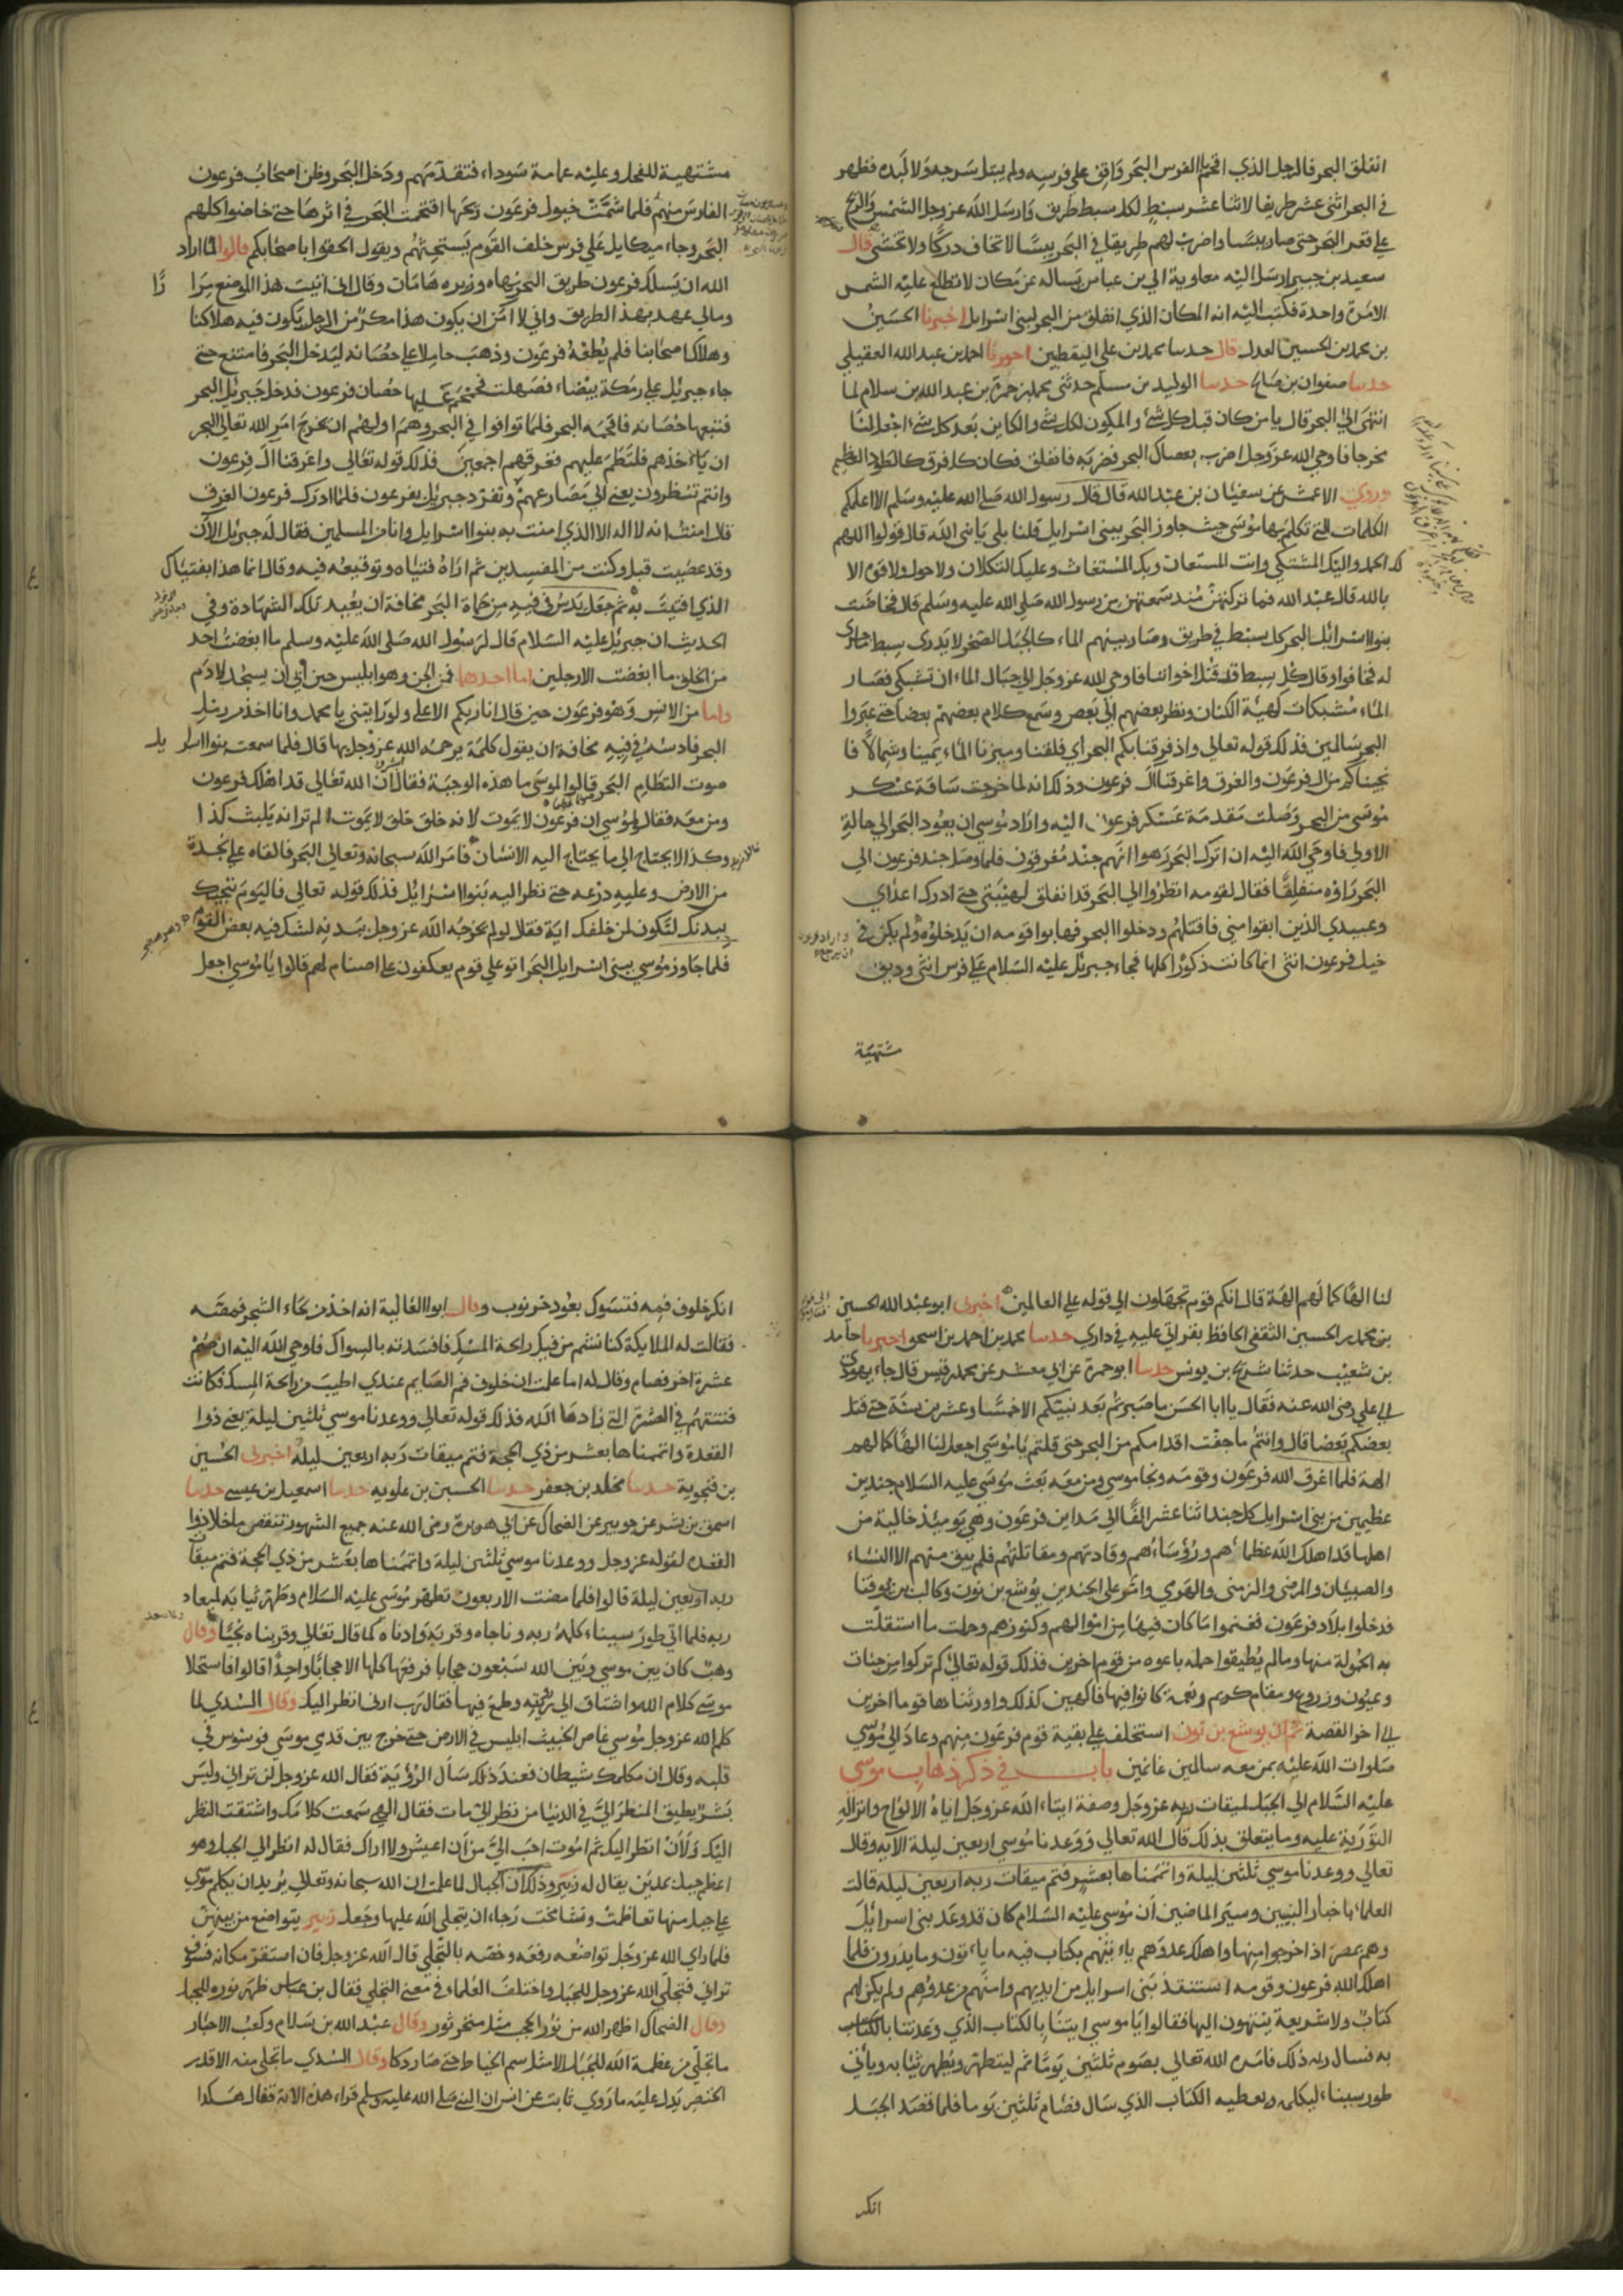 انفلق البحر فالرجل الذي اقحم الفرس البحر واقف على فرسه ولم يبتل سرجه ولا لبده فظهر
في البحر اثنى عشر طريقا لاثنا عشر سبط لكل سبط طريق وارسل الله عز وجل الشمس والريح
على قعر البحر حتى صار يبسا واضرب لهم طريقا في البحر يبسا لا تخاف دركا ولا تخشى قال
سعيد بن جبير ارسل اليه معاوية الى بن عباس يساله عن مكان لا تطلع عليه الشمس
الا مرة واحدة فكتب اليه انه المكان الذي انفلق من البحر لبنى اسرايل اخبرنا الحسين
بن محمد بن الحسين العدل قال حدسا محمد بن علي اليقطين احمد بن عبد الله العقيلي
حدسا صفوان بن صالح حدسا الوليد بن مسلم حدثنى محمد بن حمزة بن عبد الله بن سلام لما
انتهى الى البحر قال يا من كان قبل كل شئ والمكون لكل شئ والكاين بعد كل شئ اجعل لنا
مخرجا فاوحى الله عز وجل اضرب بعصاك البحر فضربه فانفلق فكان كل فرق كالطود العظيم
وروى الاعمش عن سفيان بن عبد الله قال قال رسول الله صلى الله عليه وسلم الا اعلمكم
الكلمات التي تكلم بها موسى حيث جاوز البحر ببنى اسرايل قلنا بلى يا نبى الله قال قولوا اللهم
لك الحمد واليك المشتكى وانت المستعان وبك المستغاث وعليك التكلان ولا حول ولا قوة الا
بالله قال عبد الله فما تركتهن مند سمعتهن من رسول الله صلى الله عليه وسلم قال فخاضت
بنوا اسرائيل البحر كل سبط في طريق وصار بينهم الماء كالجبل الضخم لا يدرى سبط ما جرى
له فخافوا وقال كل سبط قد قتل اخواننا فاوحى الله عز وجل الى جبال الماء ان تشبكي فصار
الماء مشبكات كهيئة الكتان ونظر بعضهم الى بعض وسمع كلام بعضهم بعضا حتى عبروا
البحر سالمين فذلك قوله تعالى واذ فرقنا بكم البحر اي فلقنا وميزنا الماء يمينا وشمالا فا
نجيناكم من ال فرعون والغرق واغرقنا ال فرعون وذلك انه لما خرجت ساقة عسكر
موسى من البحر وصلت مقدمة عسكر فرعون اليه واراد موسى ان يعود البحر الى حالته
الاولى فاوحى الله اليه ان اترك البحر رهوا انهم جند مغرقون فلما وصل جند فرعون الى
البحر راوه منفلقا فقال لقومه انظروا الى البحر قد انفلق لهيبتي حتى ادرك اعداي
وعبيدي الذين ابقوا مني فاقتلهم ودخلوا البحر فهابوا قومه ان يدخلوه ولم يكن في
خيل فرعون انثى انما كانت ذكورا كلها فجاء جبريل عليه السلام على فرس انثى وديق
مشتهية
مشتهية للفحل وعليه عمامة سوداء فتقدمهم ودخل البحر وظن اصحاب فرعون
الفارس منهم فلما شمت خيول فرعون ريحها اقتحمت البحر في اثرها حتى خاضوا كلهم
البحر وجاء ميكايل على فرس خلف القوم يستحثهم ويقول الحقوا باصحابكم قالوا لما اراد
الله ان يسلك فرعون طريق البحر نهاه وزيره هامان وقال انى اتيت هذا الموضع مرا را
ومالي عهد بهذا الطريق واني لا امن ان يكون هذا مكر من الرجل يكون فيه هلاكنا
وهلاك اصحابنا فلم يطعه فرعون وذهب حاملا على حصانه ليدخل البحر فامتنع حتى
جاء جبريل على رمكة بيضاء فصهلت فحمحم عليها حصان فرعون فدخل جبريل البحر
فتبعها حصانه فاقحمه البحر فلما توافوا في البحر وهم اولهم ان يخرج امر الله تعالى البحر
ان ياخذهم فالتطم عليهم فغرقهم اجمعين فذلك قوله تعالى واغرقنا ال فرعون
وانتم تنظرون يعنى الى مصارعهم وتفرد جبريل بفرعون فلما ادرك فرعون الغرق
قال امنت انه لا اله الا الذي امنت به بنوا اسرايل وانا من المسلمين فقال له جبريل الان
وقد عصيت قبل وكنت من المفسدين ثم اراه فتياه وتوقيعه فيه وقال انما هذا بفتياك
الذي افتيت به ثم جعل يدس في فيه من حماة البحر مخافة ان يعيد تلك الشهادة وفي
الحديث ان جبريل عليه السلام قال لرسول الله صلى الله عليه وسلم ما ابغضت احد
من الخلق ما ابغضت الا رجلين اما احدهما فمن الجن وهو ابليس حين ابى ان يسجد لادم
واما من الانس وهو فرعون حين قال انا ربكم الاعلى ولو رايتنى يا محمد وانا اخذ من رمل
البحر فادسه في فيه مخافة ان يقول كلمة يرحمه الله عز وجل بها قال فلما سمعت بنوا اسرا يل
صوت التطام البحر قالوا لموسى ما هذه الوجبة فقال ان الله تعالى قد اهلك فرعون
ومن معه فقالوا لموسى ان فرعون لا يموت لانه خلق خلق لا يموت الم تر انه يلبث كذا
وكذا لا يحتاج الى ما يحتاج اليه الانسان فامر الله سبحانه وتعالى البحر فالقاه على نجدة
من الارض وعليه درعه حتى نظر اليه بنوا اسرائل فذلك قوله تعالى فاليوم ننجيك
ببدنك لتكون لمن خلفك اية فقالا لو لم يخرجه الله عز وجل ببدنه لشك فيه بعض القوم
فلما جاوز موسى ببنى اسرايل البحر اتو على قوم يعكفون على اصنام لهم قالوا يا موسى اجعل
لنا الها كما لهم الهة قال انكم قوم تجهلون الى قوله على العالمين اخبرني ابو عبد الله الحسين
بن محمد بن الحسين الثقفى الحافظ بقراتى عليه في داري حدسا محمد بن احمد بن اسحق اخبرنا حامد
بن شعيب حدثنا شريح بن يونس حدسا ابو حمزة عن ابى معشر عن محمد قيس قال جاء يهودى
الى علي رضى الله عنه فقال يا ابا الحسن ما صبرتم بعد نبيتكم الا خمسا وعشرين سنة حتى قتل
بعضكم بعضا قال وانتم ما جفت اقدامكم من البحر حتى قلتم يا موسى اجعل لنا الها كما لهم
الهة فلما اغرق الله فرعون وقومه ونجا موسى ومن معه بعث موسى عليه السلام جندين
عظيمين من بنى اسرايل كل جند اثنا عشر الفا الى مداين فرعون وهى يوميذ خالية من
اهلها قد اهلك الله عظماءهم ورؤساءهم وقادتهم ومقاتلتهم فلم يبق منهم الا النساء
والصبيان والمرضى والزمنى والهرمي وامر على الجندين يوشع بن نون وكالب بن يوفنا
فدخلوا بلاد فرعون فغنموا ما كان فيها من اموالهم وكنوزهم وحملت ما استقلت
به الحمولة منها ومالم يطيقوا حمله باعوه من قوم اخرين فذلك قوله تعالى كم تركوا من جنات
وعيون وزروع ومقام كريم ونعمة كانوا فيها فاكهين كذلك واورثناها قوما اخرين
الى اخر القصة ثم ان يوشع بن نون استخلف على بقية قوم فرعون منهم وعاد الى موسى
صلوات الله عليه بمن معه سالمين غانمين باب في ذكر ذهاب موسى
عليه السلام الى الجبل لميقات ربه عز وجل وصفة ايتاء الله عز وجل اياه الالواح وانزاله
التورية عليه وما يتعلق بذلك قال الله تعالى ووعدنا موسى اربعين ليلة الآية وقال
تعالى ووعدنا موسى ثلثين ليلة واتممناها بعشر فتم ميقات ربه اربعين ليلة قالت
العلماء باخبار النبيين وسير الماضين ان موسى عليه السلام كان قد وعد بنى اسرايل
وهم بمصر اذا خرجوا منها واهلك عدوهم ياءتيهم بكتاب فيه ما ياءتون وما يدرون فلما
اهلك الله فرعون وقومه استنقذ بنى اسرايل من ايديهم وامنهم من عدوهم ولم يكن لهم
كتاب ولا شريعة ينتهون اليها فقالوا يا موسى ايتنا بالكتاب الذي وعدتنا بالكتاب
به فسال ربه ذلك فامره الله تعالى بصوم ثلثين يوما ثم ليتطهر ويطهر ثيابه وياتى
طور سيناء ليكلمه ويعطيه الكتاب الذي سال فصام ثلثين يوما فلما قصد الجبل
انكر
انكر خلوف فمه فتسوك بعود خرنوب وقال ابوا العالية انه اخذ من لحاء الشجر فمضغه
فقالت له الملايكة كنا نشم من فيك راحة المسك فافسدته بالسواك فاوحى الله اليه ان صم
عشرة اخر فصام وقال له اما علمت ان خلوف فم الصايم عندي اطيب من راحة المسك فكانت
فتنتهم في العشر التي زادها الله فذلك قوله تعالى ووعدنا موسى ثلثين ليلة يعنى ذوا
القعدة واتممناها بعشر من ذي الحجة فتم ميقات ربه اربعين ليلة اخبرنى الحسين
بن فنجوية حدسا مخلد بن جعفر حدسا الحسين بن علويه حدسا اسمعيل بن عيسى حدسا
اسحق بن بشر عن جويبر عن الضحاك عن ابى هريرة رضى الله عنه جميع الشهور تنقص ما خلا ذوا
القعده لقوله عز وجل ووعدنا موسى ثلثين ليلة واتممناها بعشر من ذي الحجة فتم ميقات
ربه اربعين ليلة قالوا فلما مضت الاربعون تطهر موسى عليه السلام وطهر ثيابه لميعاد
ربه فلما اتى طور سيناء كلمه ربه وناجاه وقربه وادناه كما قال تعالى وقربناه نجيا وقال
وهب كان بين موسى وبين الله سبعون حجابا فرفعها كلها الا حجابا واحدا قالوا فاستحلا
موسى كلام الله واشتاق الى رؤيته وطمع فيها فقال رب ارنى انظر اليك وقال السدي لما
كلم الله عز وجل موسى غاص الخبيث ابليس في الارض حتى خرج بين قدمي موسى فوسوس في
قلبه وقال ان مكلمك شيطان فعند ذلك سال الرؤية فقال الله عز وجل لن تراني وليس
بشر يطيق المنظر الي في الدنيا من نظر الي مات فقال الهى سمعت كلامك واشتقت النظر
اليك ولان انظر اليك ثم اموت احب الي من ان اعيش ولا اراك فقال له انظر الى الجبل وهو
اعظم جبل بمدين يقال له زبير وذلك ان الجبال لما علمت ان الله سبحانه وتعالى يريد ان يكلم موسى
على جبل منها تعاظمت وتشامخت رجاء ان يتجلى الله عليها وجعل زبير يتواضع من بينهن
فلما راى الله عز وجل تواضعه رفعه وخصه بالتجلي قال الله عز وجل فان استقر مكانه فسوف
تراني فتجلى الله عز وجل للجبل واختلف العلماء في معنى التجلي فقال بن عباس ظهر نوره للجبل
وقال الضحاك اظهر الله من نور الحجب مثل منخر ثور وقال عبد الله بن سلام وكعب الاحبار
ما تجلي من عظمة الله للجبل الا مثل سم الخياط حتى صار دكا وقال السدي ما تجلى منه الا قدر
الخنصر يدل عليه ما روي ثابت عن انس ان النبى صلى الله عليه وسلم قراء هذه الاية فقال هكذا